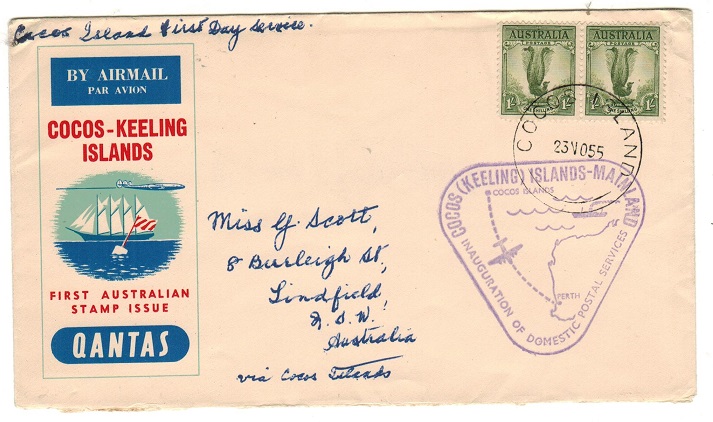 Cocos Island First Day Service.
BY AIRMAIL
PAR AVION
COCOS-KEELING
ISLANDS
FIRST AUSTRALIAN
STAMP ISSUE
QANTAS
AUSTRALIA
POSTAGE
1/-
1/-
ONE SHILLING
AUSTRALIA
POSTAGE
1/-
1/-
ONE SHILLING
COCOS ISLAND
23 NO 55
COCOS (KEELING) ISLANDS-MAINLAND
COCOS ISLANDS
PERTH
INAUGURATION OF DOMESTIC POSTAL SERVICES
Miss G. Scott,
8 Burleigh St,
Lindfield,
N.S.W.
Australia
via Cocos Islands